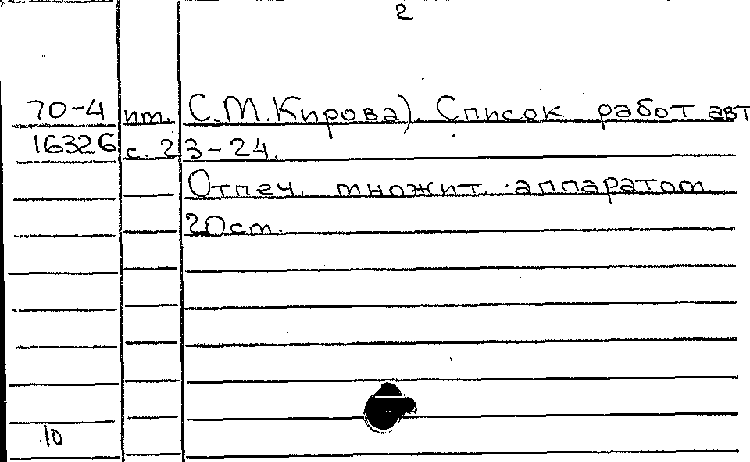 2
70-4 им. С.М.Кирова). Список работ авт
16326 с. 23-24.
Отпеч. множит. аппаратом
20см.
10